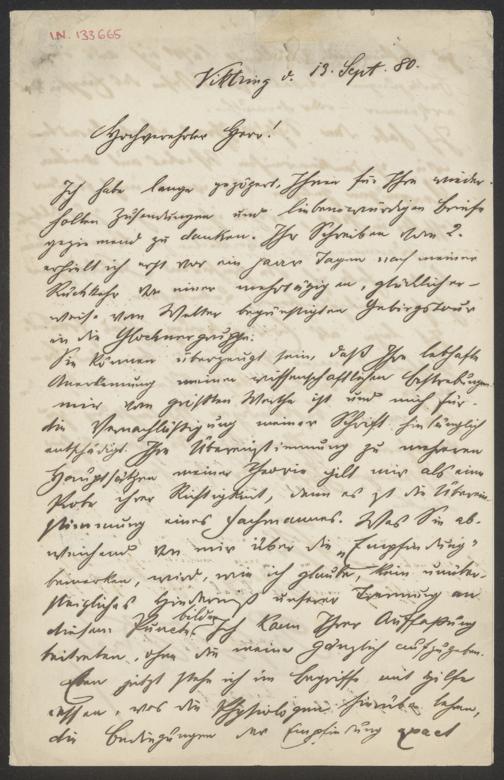 I.N. 133665
Viktring d. 13. Sept. 80.
Hochverehrter Herr!
Ich habe lange gezögert, Ihnen für Ihre wieder-
holten Zusendungen und liebenswürdigen Briefe
geziemend zu danken. Ihr Schreiben vom 2.
erhielt ich erst vor ein paar Tagen nach meiner
Rückkehr von einer mehrtägigen, glücklicher-
weise vom Wetter begünstigten Gebirgstour
in die Glocknergruppe.
Sie können überzeugt sein, daß Ihre lebhafte
Anerkennung meiner wissenschaftlichen Bestrebungen
mir vom größten Werthe ist und mich für
die Vernachläßigung meiner Schrift hinlänglich
entschädigt. Ihre Übereinstimmung zu mehreren
Hauptsätzen meiner Theorie gilt mir als eine
Probe ihrer Richtigkeit, denn es ist die Überein-
stimmung eines Fachmannes. Was Sie ab-
weichend von mir über die „Empfindung"
bemerken, wird, wie ich glaube, kein unüber-
steigliches Hinderniß unserer Trennung an
diesem Puncte bilden. Ich kann Ihrer Auffassung
beitreten, ohne die meine gänzlich aufzugeben.
Eben jetzt stehe ich im Begriffe mit Hilfe
dessen, was die Physiologen hierüber lehren,
die Bedingungen der Empfindung exact